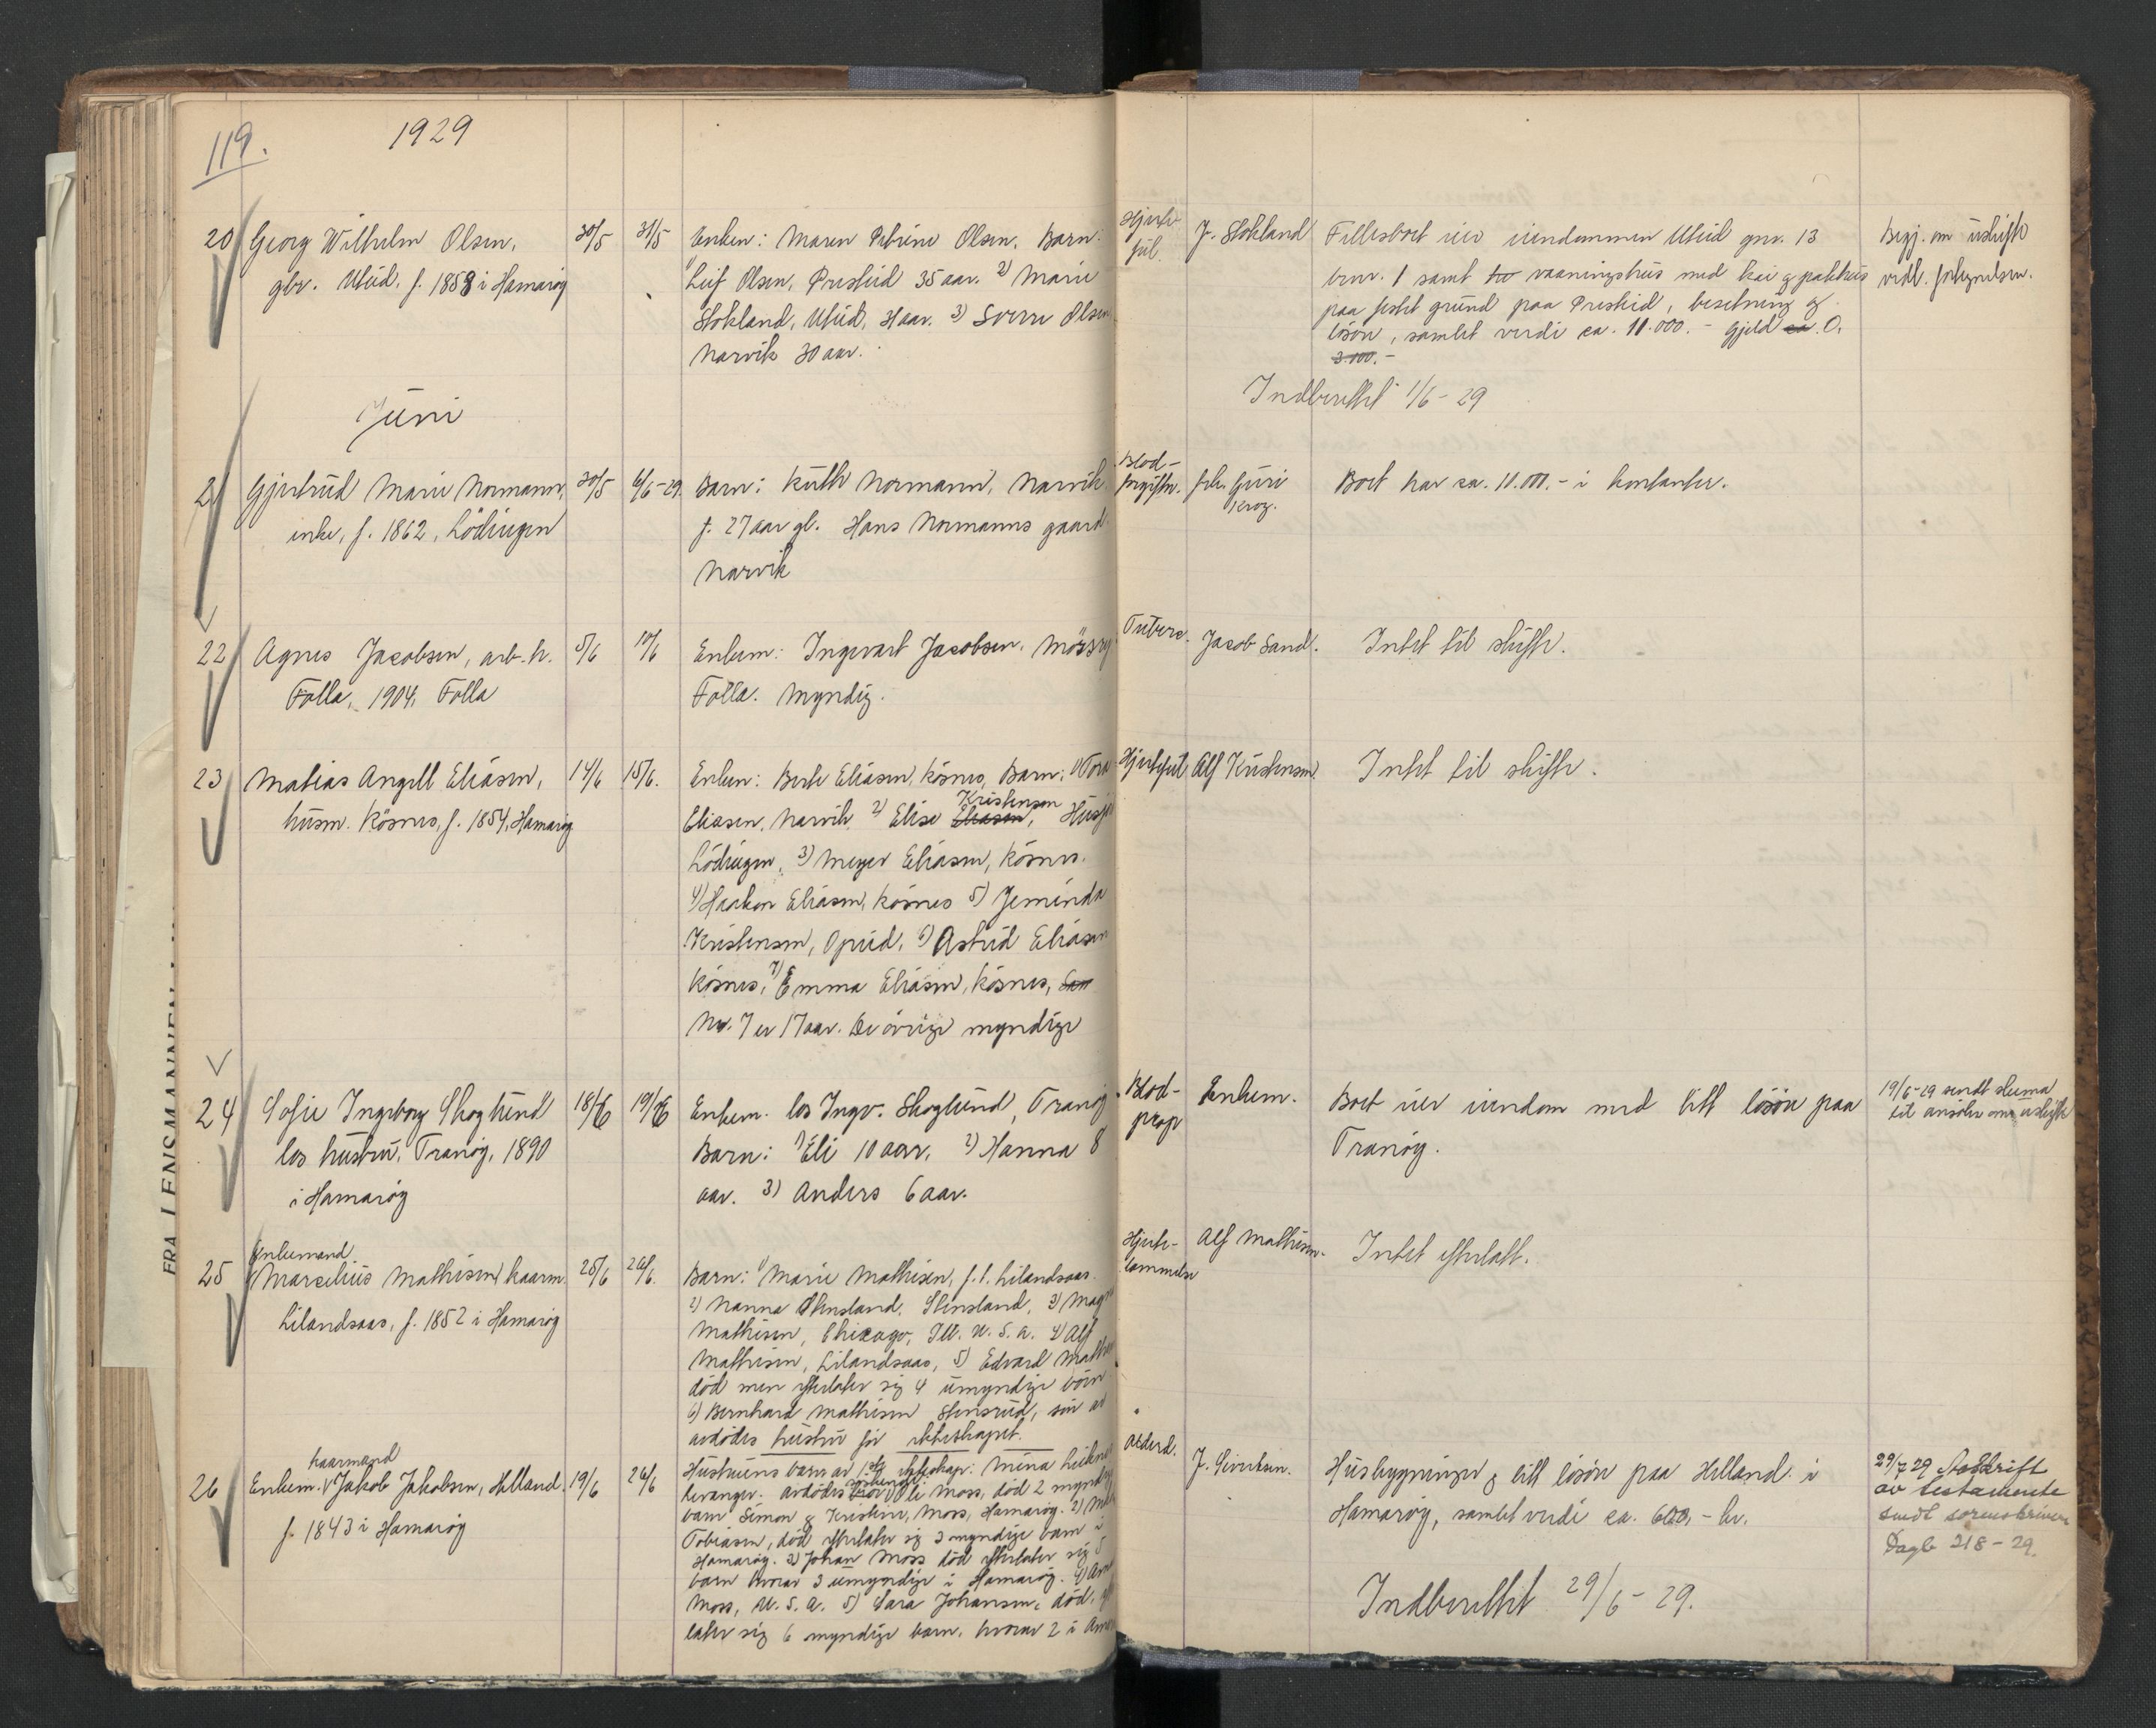 119.
1929
20 Georg Wilhelm Olsen, 30/5 31/5 Enken: Maren Petrine Olsen. Barn:
gbr. Uteid, f. 1858 i Hamarøy
1) Leif Olsen, Presteid 35 aar. 2) Marie
Stokland, Uteid, 31 aar. 3) Sverre Olsen
Narvik 30 aar.
Hjerte-
feil.
J. Stokland
Fællesboet eier eiendommen Uteid gnr. 13
bnr. 1 samt to vaaningshus med kai og pakhus
paa festet grund paa Presteid, besetning og
løsøre, samlet verdi ca. 11.000.- Gjeld ca. 0.
3.000.-
Begj. om uskifte
vedl. fortegnelsen.
Indberettet 1/6-29
Juni
21 Gjertrud Marie Normann, 30/5 6/6-29 Barn: Kåthe Normann, Narvik
enke, f. 1862, Lødingen
f. 27 aar gl. Hans Normanns gaard
Narvik
Blod-
forgiftn.
frk. Guri
Krog.
Boet har ca. 11.000.- i kontanter.
22 Agnes Jacobsen, arb.h. 5/6 10/6 Enkem: Ingvart Jacobsen, Mørsry
Folla, 1904, Folla
Folla. Myndig.
Tuberc.
Jacob Sand.
Intet til skifte.
23 Matias Angell Eliasen, 14/6 15/6. Enken: Berte Eliasen, Kösnes, Barn: 1) Tora
husm. Kösnes, f. 1854, Hamarøy
Eliasen, Narvik, 2) Elise Eliasen, Kristensen
Lødingen, 3) Meyer Eliasen, Kösnes.
4) Haakon Eliasen, Kösnes 5) Jeminda
Kristensen, Opeid, 6) Astrid Eliasen
Kösnes, 7) Emma Eliasen, Kösnes,
Nr. 7 er 17 aar. De øvrige myndige
Hjertefeil Alf Kristensen
Intet til skifte.
24 Sofie Ingeborg Skoglund 18/6 19/6 Enkem. los Ingv. Skoglund, Tranøy
los hustru, Tranøy, 1890
i Hamarøy
Barn: 1) Eli 10 aar, 2) Hanna 8
aar. 3) Anders 6 aar.
Blod-
prop
Enkem.
Boet eier eiendom med litt løsøre paa
Tranøy.
19/6-29 sendt skema
til ansøkn om uskifte
Enkemand
25 Marselius Mathisen, kaarm. 25/6 26/6. Barn: 1) Marie Mathisen, f. l. Lilandsaas.
Lilandsaas, f. 1852 i Hamarøy
2) Nanna Stensland, Stensland, 3) Mag
Mathisen, Chicago, Ill. U.S.A. 4) Alf
Mathisen, Lilandsaas, 5) Edvard Math
død men efterlater sig 4 umyndige børn
6) Bernhard Mathisen Stensrud, søn av
avdødes hustru før ekteskapet.
Hjerte-
lammelse
Alf Mathisen.
Intet efterlatt.
kaarmand
26 Enkem. Jakob Jakobsen, Helland. 19/6 26/6
f. 1843 i Hamarøy
Hustruens barn av 1ste ekteskap: Mina
Levanger. avdødes Ole Moss, død 2 myndige
barn Simon & Kristine, Moss, Hamarøy. 2)
Tobiasen, død efterlater sig 3 myndige barn i
Hamarøy. 3) Johan Moss død efterlater sig 5
barn hvorav 3 umyndige i Hamarøy. 4)
Moss, U.S.A. 5) Sara Johansen, død,
later sig 6 myndige barn, hvorav 2 i
Alderd.
J. Sivertsen.
Husbygninger og litt løsøre paa Helland i
Hamarøy, samlet verdi ca. 600,- kr.
29/7 29 Avskrift
av testamente
sendt sorenskriveren
Dagb 218-29.
Indberettet 29/6-29.
FRA LENSMANNEN